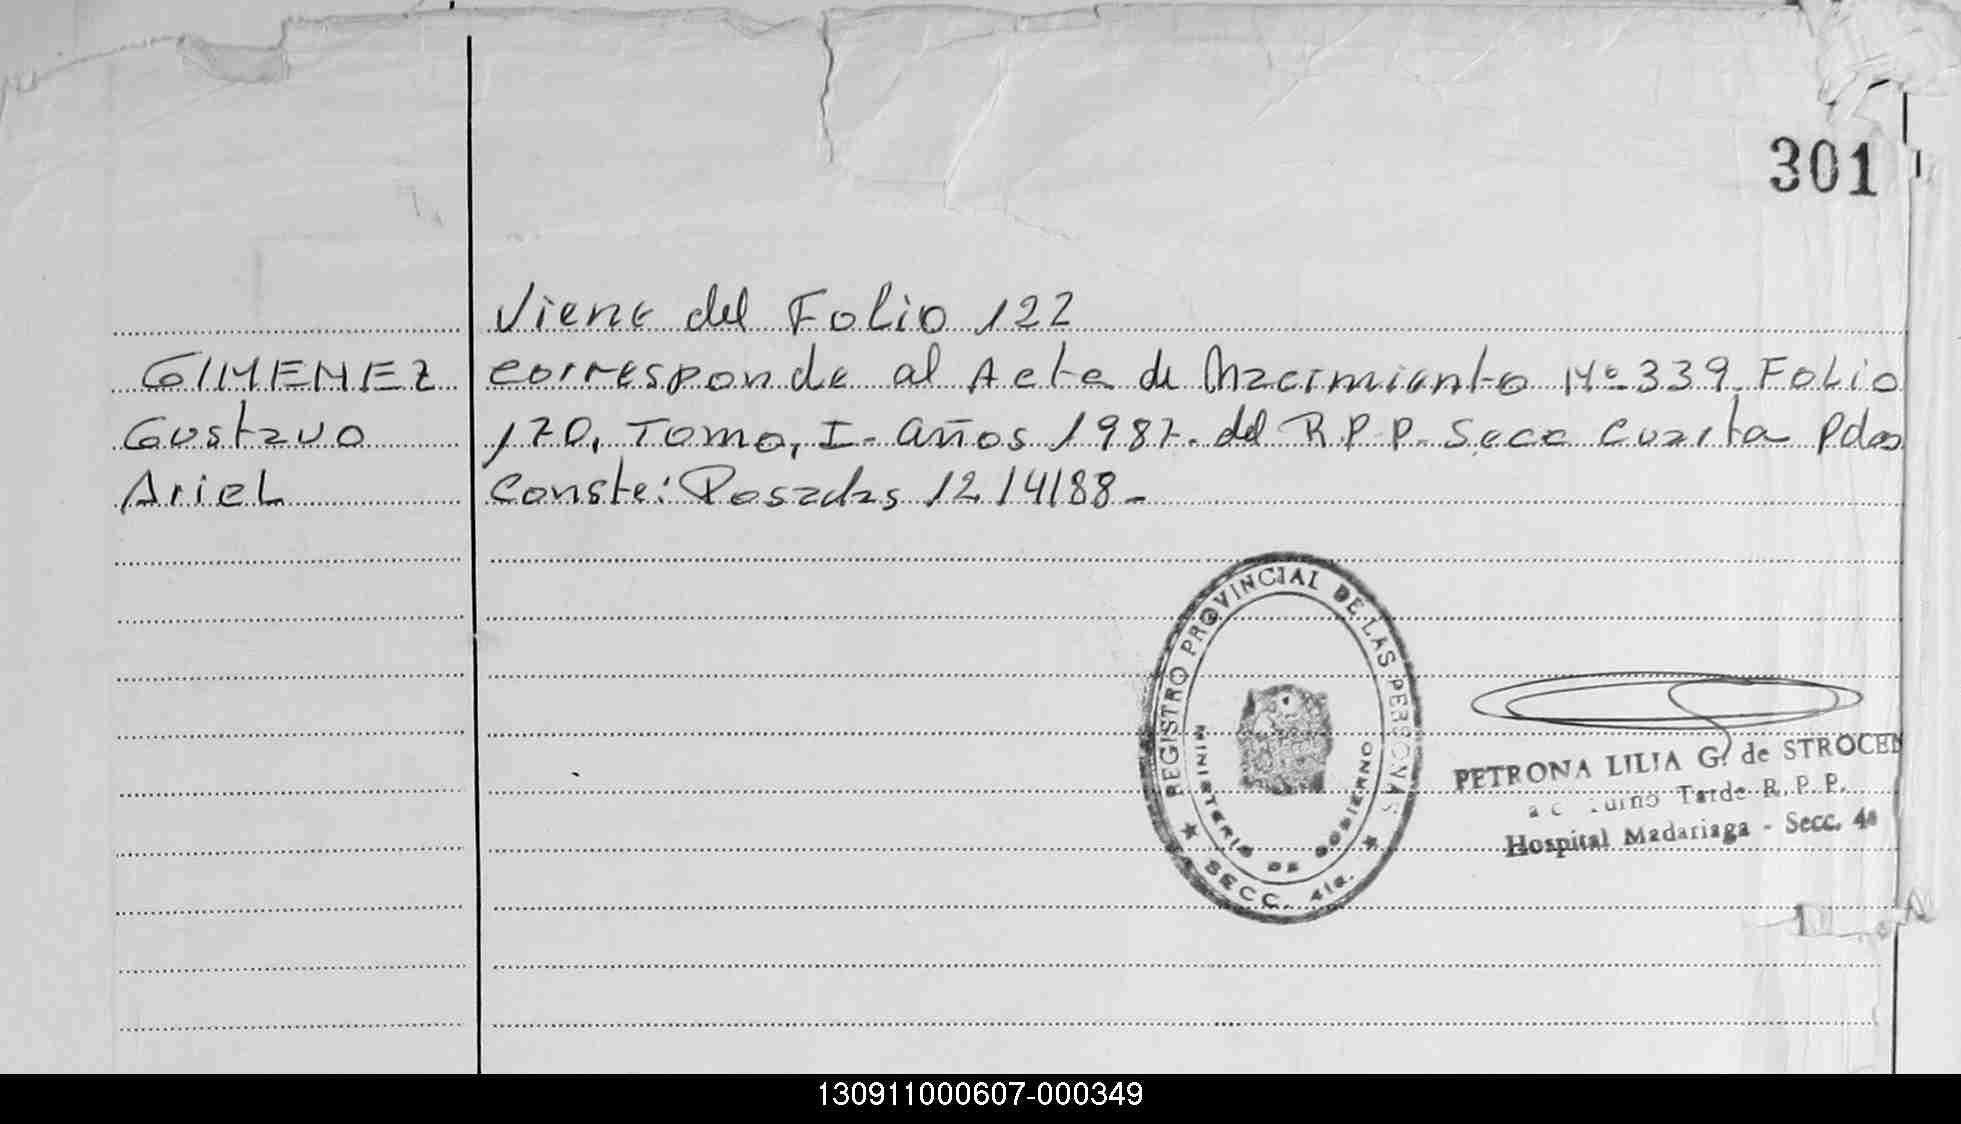 301
Viene del Folio 122
GIMENEZ corresponde al Acta de Nacimiento Nº 339, Folio
Gustavo 170, Tomo, I- años 1987. del R.P.P. Secc Cuarta Pdas
Ariel Conste: Posadas 12/4/88-
REGISTRO PROVINCIAL DE LAS PERSONAS
MINISTERIO DE GOBIERNO
SECC. 4ta.
PETRONA LILIA G. de
Turno Tarde R. P. P.
Hospital Madariaga - Secc. 4a
130911000607-000349